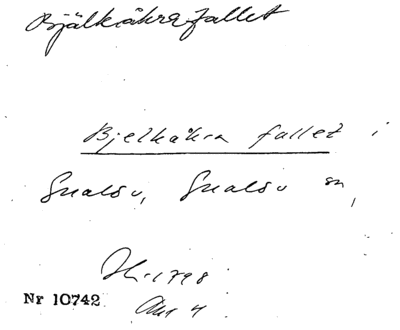 Bjälkåhra fallet
Bjelkåhra fallet i
Gualöv, Gualöv sn,
1798
Nr 10742
Akt 4